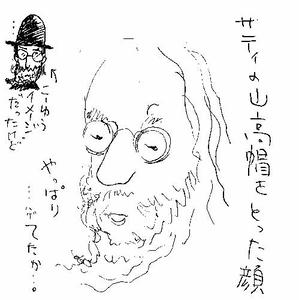 サティの山高帽をとった顔
こーゆう
イメージ
だったけど
やっぱり
……ハゲてたか…。